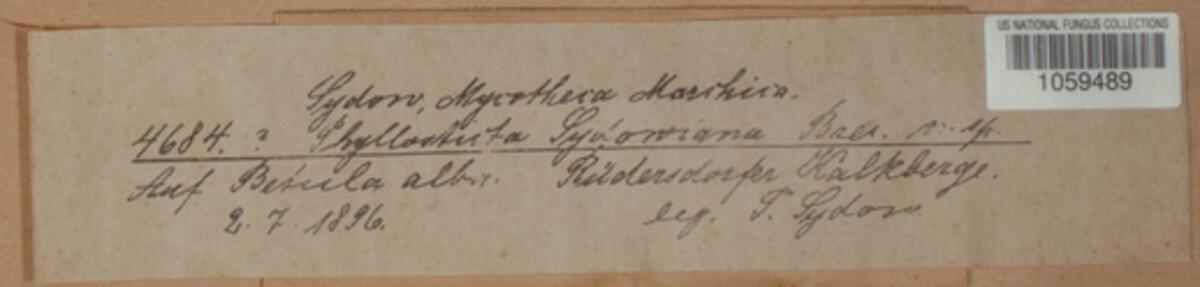 US NATIONAL FUNGUS COLLECTIONS
1059489
Sydow, Mycotheca Marchica.
4684. ? Phyllosticta Sydowiana Bres. n. sp.
Auf Betula alba. Rüdersdorfer Kalkberge.
2. 7. 1896. leg. P. Sydow